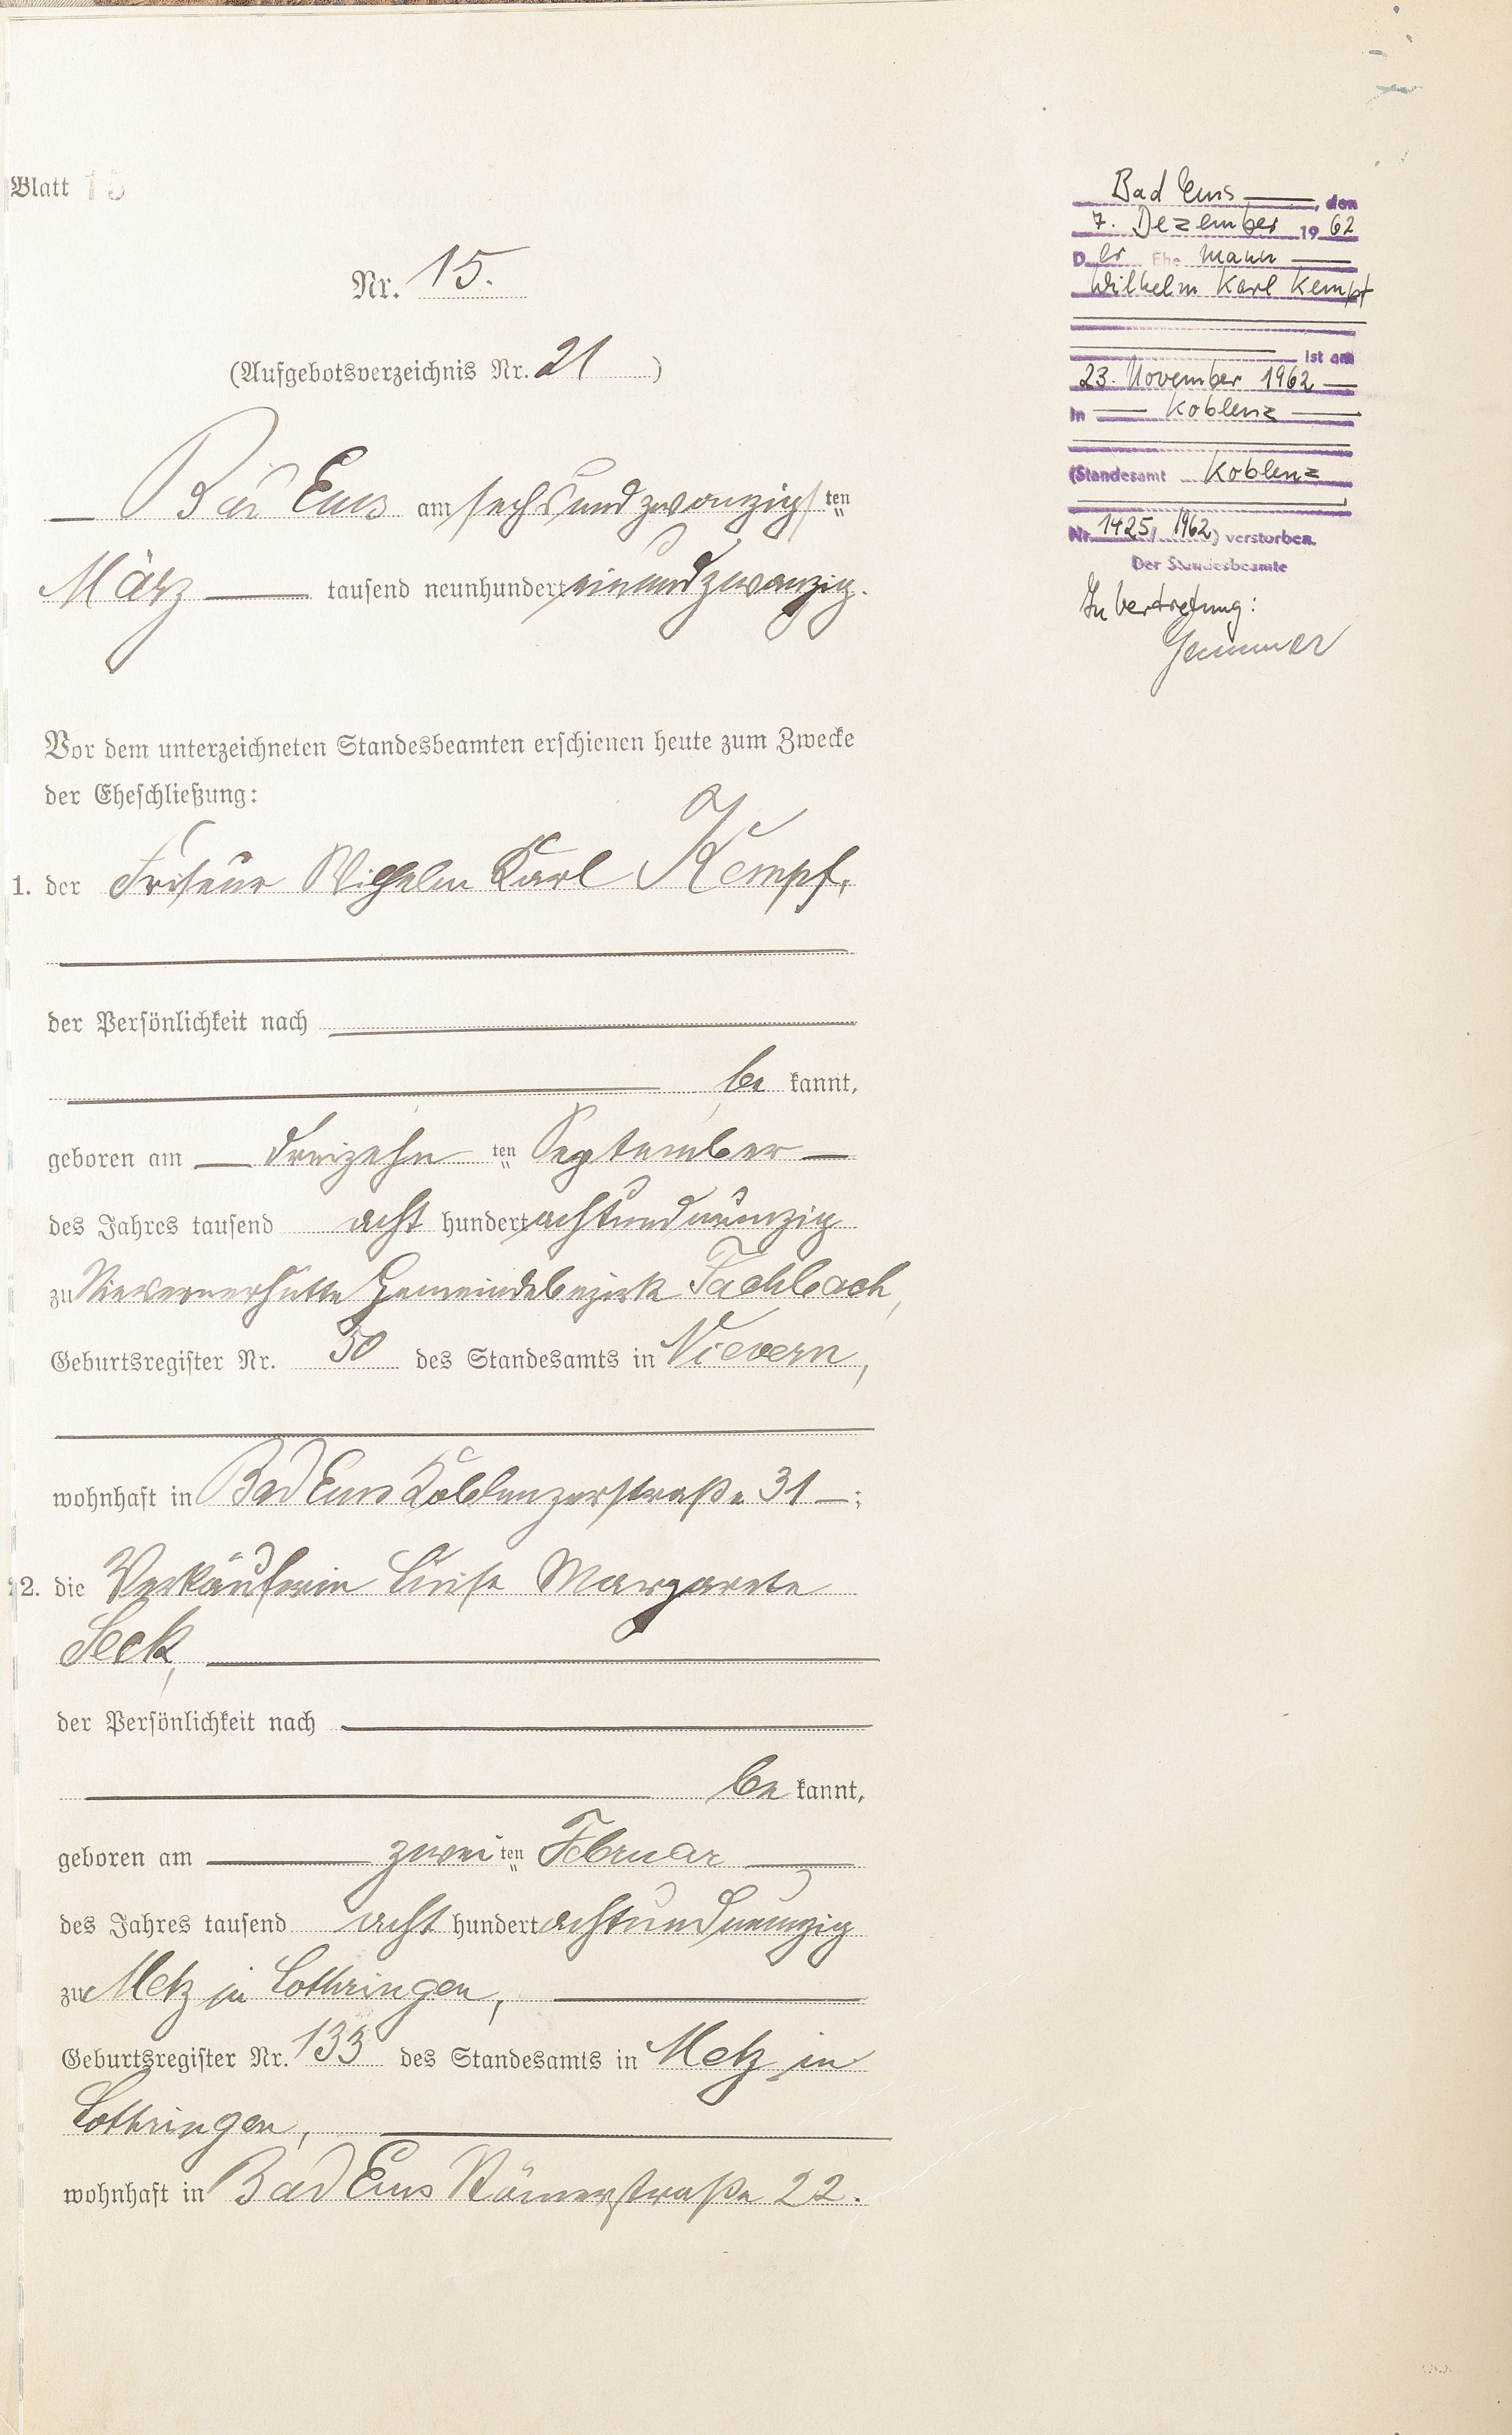 Blatt 15
Nr. 15.
(Aufgebotsverzeichnis Nr. 21)
Bad Ems am sechsundzwanzigsten
März tausend neunhundert einundzwanzig.
Vor dem unterzeichneten Standesbeamten erschienen heute zum Zwecke
der Eheschließung:
1. der Friseur Wilhelm Karl Kempf,
der Persönlichkeit nach
be kannt,
geboren am dreizehn ten September
des Jahres tausend acht hundert achtundneunzig
zu Nievernerhütte Gemeindebezirk Fachbach,
Geburtsregister Nr. 50 des Standesamts in Nievern,
wohnhaft in Bad Ems Koblenzerstraße 31 ;
2. die Verkäuferin Luise Margarete
Seck,
der Persönlichkeit nach
be kannt,
geboren am zwei ten Februar
des Jahres tausend acht hundert achtundneunzig
zu Metz in Lothringen,
Geburtsregister Nr. 133 des Standesamts in Metz in
Lothringen,
wohnhaft in Bad Ems Römerstraße 22.
Bad Ems, den
7. Dezember 1962
Der Ehemann
Wilhelm Karl Kempf
ist am
23. November 1962
in Koblenz
(Standesamt Koblenz
Nr. 1425, 1962) verstorben.
Der Standesbeamte
In Vertretung: